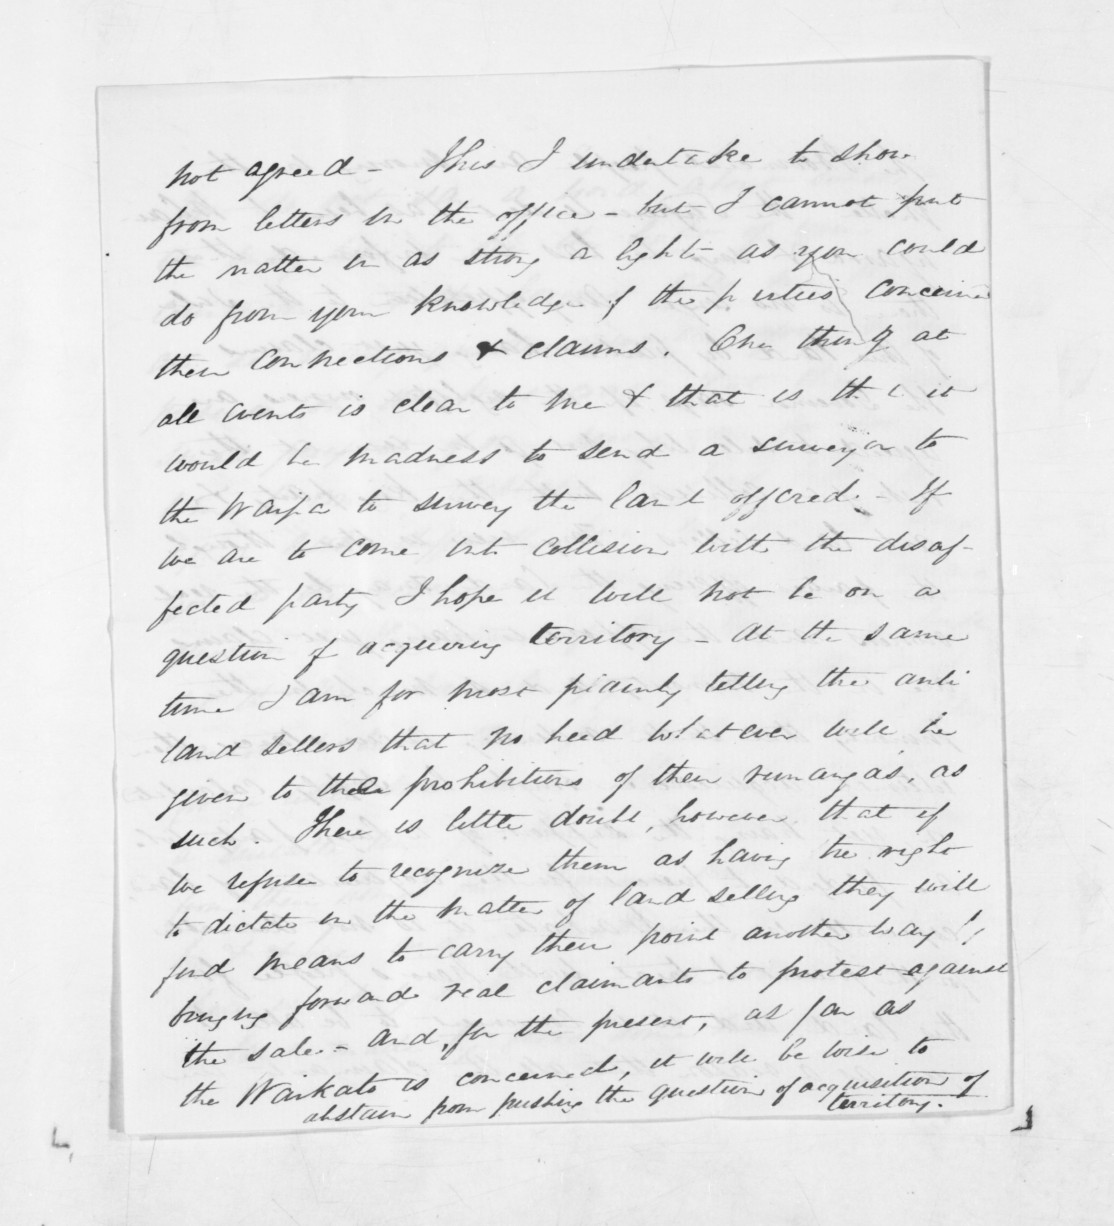 not agreed - This I undertake to show
from letters in the office - but I cannot put
the matter in as strong a light as you could
do from your knowledge of the parties concerned
their connections & claims. One thing at
all events is clear to me & that is that it
would be madness to send a surveyor to
the Waipa to survey the land offered. - If
we are to come into collision with the disaf-
fected party I hope it will not be on a
question of acquiring territory - At the same
time I am for most plainly telling the anti
land sellers that no heed whatever will be
given to the prohibitions of their runangas, as
such. There is little doubt, however, that if
we refuse to recognize them as having the right
to dictate in the matter of land selling they will
find means to carry their point another way by
bringing forward real claimants to protest against
the sale - and, for the present, as far as
the Waikato is concerned, it will be wise to
abstain from pushing the question of acquisition of
territory.